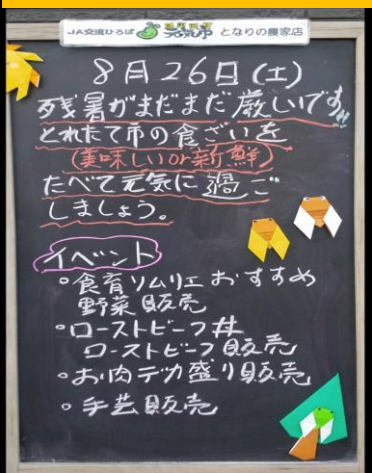 JA交流ひろば 元気市 となりの農家店
8月26日(土)
残暑がまだまだ厳しいです!!
とれたて市の食ざいを
(美味しいor新鮮)
たべて元気に過ご
しましょう。
イベント
○食育ソムリエおすすめ
野菜販売
○ローストビーフ丼
ローストビーフ販売
○お肉デカ盛り販売
○手芸販売